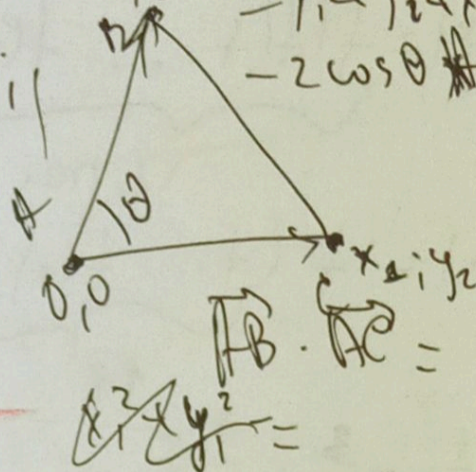 B
- 2 cos θ
A
θ
0,0
x₂; y₂
C
AB · AC =
x₁² + y₁² =